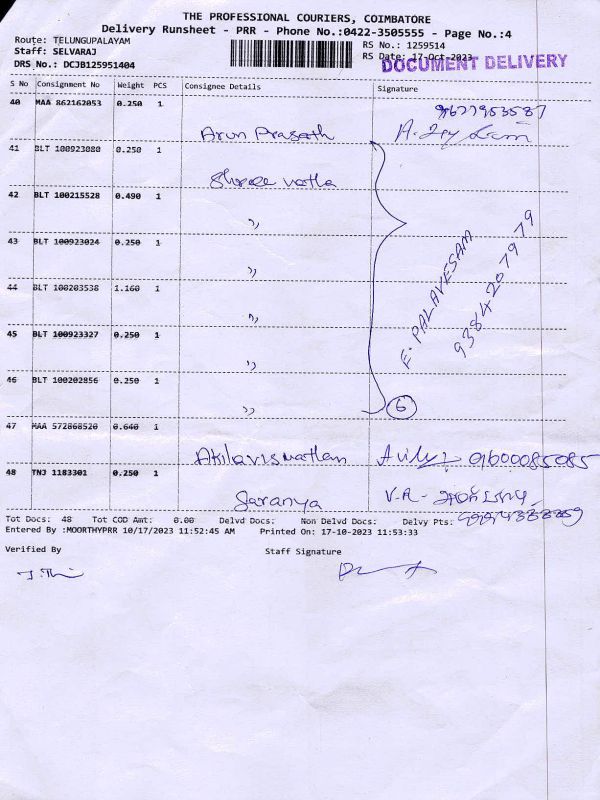 THE PROFESSIONAL COURIERS, COIMBATORE
Delivery Runsheet - PRR - Phone No.:0422-3505555 - Page No.:4
Route: TELUNGUPALAYAM
RS No.: 1259514
Staff: SELVARAJ
RS Date: 17-Oct-2023
DOCUMENT DELIVERY
DRS No.: DCJB125951404
S No Consignment No Weight PCS Consignee Details Signature
40 MAA 862162053 0.250 1
Arun Prasath
41 BLT 100923080 0.250 1
Shree vatha
42 BLT 100215528 0.490 1
"
43 BLT 100923024 0.250 1
"
F. PALAVESAM
9384207979
44 BLT 100203538 1.160 1
"
45 BLT 100923327 0.250 1
"
46 BLT 100202856 0.250 1
" 6
47 MAA 572868520 0.640 1
Akilaviswathan 9600085085
48 TNJ 1183301 0.250 1
Saranya V.A-
Tot Docs: 48 Tot COD Amt: 0.00 Delvd Docs: Non Delvd Docs: Delvy Pts:
Entered By :MOORTHYPRR 10/17/2023 11:52:45 AM Printed On: 17-10-2023 11:53:33
Verified By Staff Signature